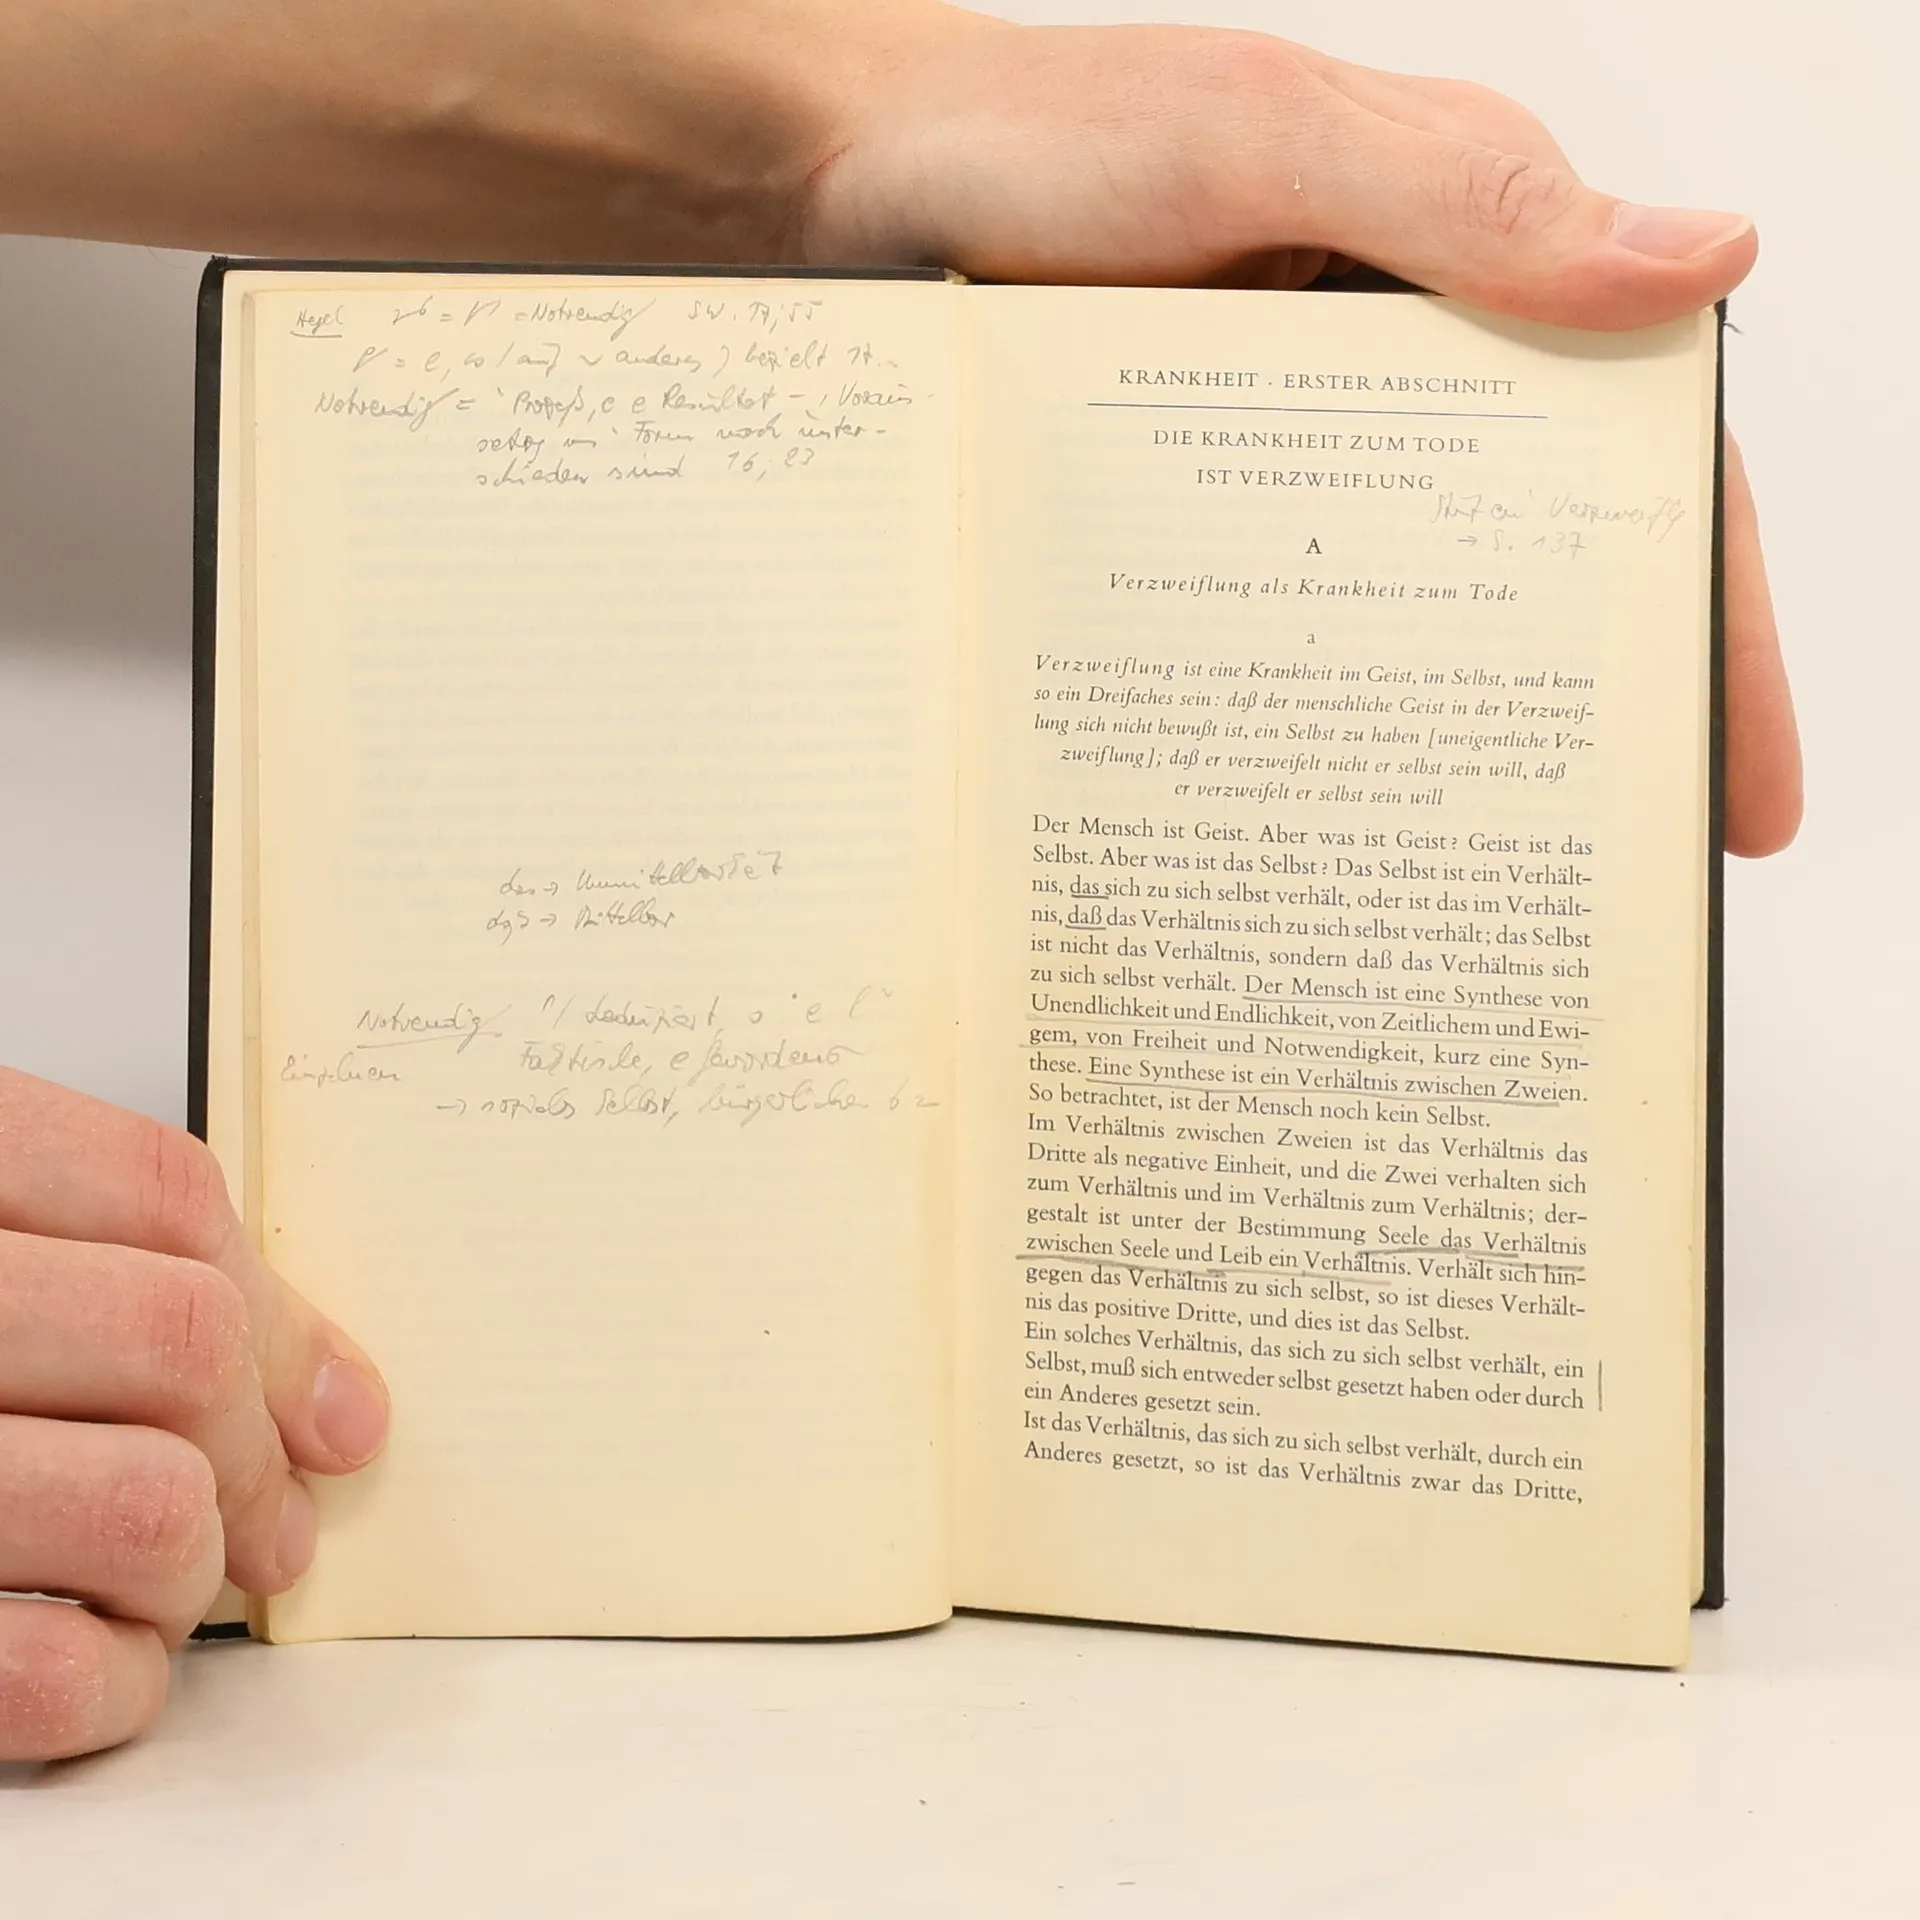 Hegel = = Notwendig SW. 17; 55
= anderes bezieht 17
Notwendig = Prozeß, Resultat Voraus-
Form noch unter-
schieden sind 16; 23
das → Unmittelbarkeit
daß → Mittelbar
Notwendig deduziert,
Einzelnen Faktische,
→ soziales Selbst, bürgerliches
KRANKHEIT · ERSTER ABSCHNITT
DIE KRANKHEIT ZUM TODE
IST VERZWEIFLUNG
→ S. 137
A
Verzweiflung als Krankheit zum Tode
a
Verzweiflung ist eine Krankheit im Geist, im Selbst, und kann
so ein Dreifaches sein: daß der menschliche Geist in der Verzweif-
lung sich nicht bewußt ist, ein Selbst zu haben [uneigentliche Ver-
zweiflung]; daß er verzweifelt nicht er selbst sein will, daß
er verzweifelt er selbst sein will
Der Mensch ist Geist. Aber was ist Geist? Geist ist das
Selbst. Aber was ist das Selbst? Das Selbst ist ein Verhält-
nis, das sich zu sich selbst verhält, oder ist das im Verhält-
nis, daß das Verhältnis sich zu sich selbst verhält; das Selbst
ist nicht das Verhältnis, sondern daß das Verhältnis sich
zu sich selbst verhält. Der Mensch ist eine Synthese von
Unendlichkeit und Endlichkeit, von Zeitlichem und Ewi-
gem, von Freiheit und Notwendigkeit, kurz eine Syn-
these. Eine Synthese ist ein Verhältnis zwischen Zweien.
So betrachtet, ist der Mensch noch kein Selbst.
Im Verhältnis zwischen Zweien ist das Verhältnis das
Dritte als negative Einheit, und die Zwei verhalten sich
zum Verhältnis und im Verhältnis zum Verhältnis; der-
gestalt ist unter der Bestimmung Seele das Verhältnis
zwischen Seele und Leib ein Verhältnis. Verhält sich hin-
gegen das Verhältnis zu sich selbst, so ist dieses Verhält-
nis das positive Dritte, und dies ist das Selbst.
Ein solches Verhältnis, das sich zu sich selbst verhält, ein
Selbst, muß sich entweder selbst gesetzt haben oder durch
ein Anderes gesetzt sein.
Ist das Verhältnis, das sich zu sich selbst verhält, durch ein
Anderes gesetzt, so ist das Verhältnis zwar das Dritte,